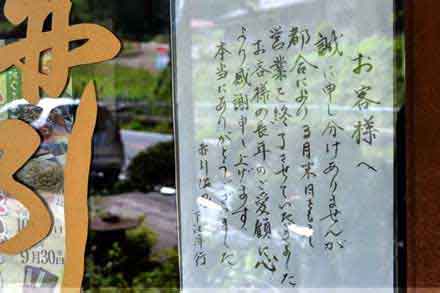 お客様へ
誠に申し分けありませんが
都合により3月末日をもって
営業を終了させていただきました
お客様の長年のご愛顧に心
より感謝申し上げます。
本当にありがとうございました
井
引
9月30日